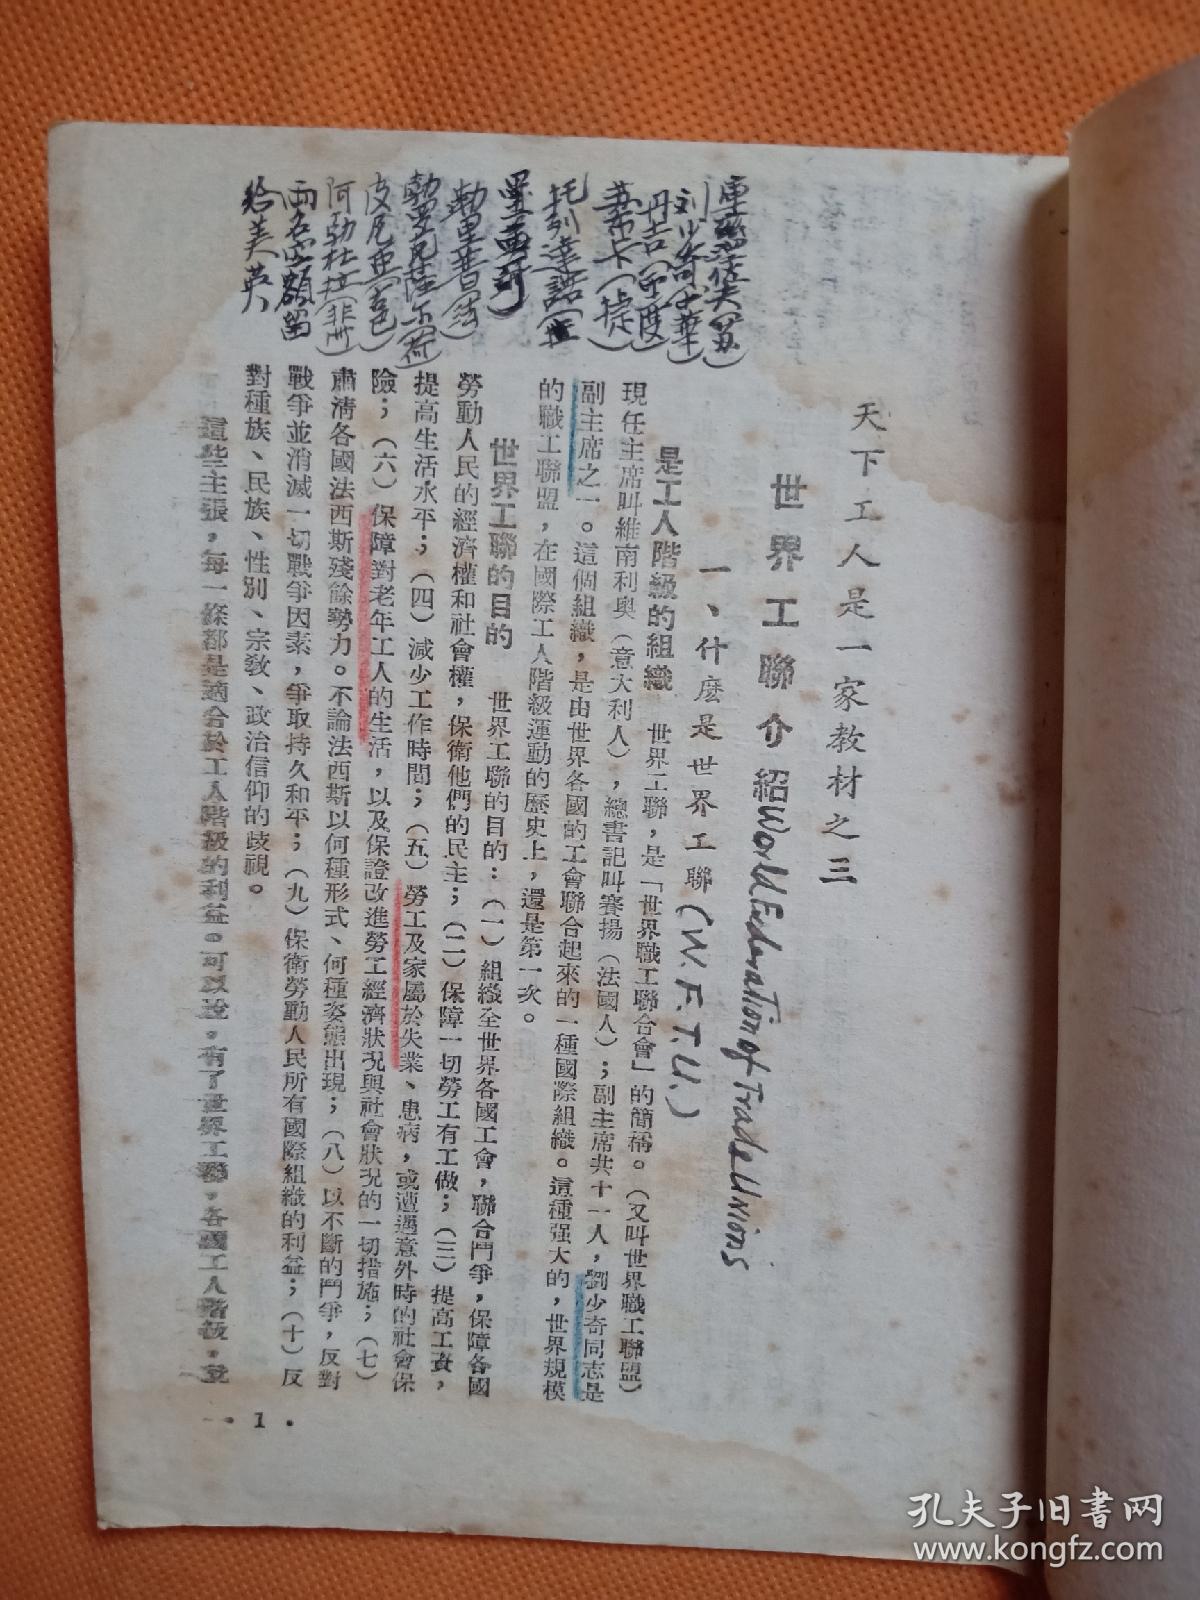 天下工人是一家教材之三
世界工聯介紹
World Federation of Trade Unions
一、什麼是世界工聯
(W.F.T.U.)
是工人階級的組織 世界工聯，是「世界職工聯合會」的簡稱。（又叫世界職工聯盟）
現任主席叫維南利奥（意大利人），總書記叫賽揚（法國人）；副主席共十一人，劉少奇同志是
副主席之一。這個組織，是由世界各國的工會聯合起來的一種國際組織。這種强大的，世界規模
的職工聯盟，在國際工人階級運動的歷史上，還是第一次。
世界工聯的目的 世界工聯的目的：（一）組織全世界各國工會，聯合鬥爭，保障各國
勞動人民的經濟權和社會權，保衛他們的民主；（二）保障一切勞工有工做；（三）提高工資，
提高生活水平；（四）減少工作時間；（五）勞工及家屬於失業、患病，或遭遇意外時的社會保
險；（六）保障對老年工人的生活，以及保證改進勞工經濟狀况與社會狀况的一切措施；（七）
肅清各國法西斯殘餘勢力。不論法西斯以何種形式、何種姿態出現；（八）以不斷的鬥爭，反對
戰爭並消滅一切戰爭因素，爭取持久和平；（九）保衛勞動人民所有國際組織的利益；（十）反
對種族、民族、性別、宗教、政治信仰的歧視。
這些主張，每一條都是適合於工人階級的利益。可以說，有了世界工聯，各國工人階級，就
• 1 •
刘少奇（中華）
丹吉（印度）
苏希卡（捷）
托列達諾
勒里普（法）
皮尼亚（古巴）
阿勃杜拉（非州）
兩名空額留
给美英
孔夫子旧书网
www.kongfz.com